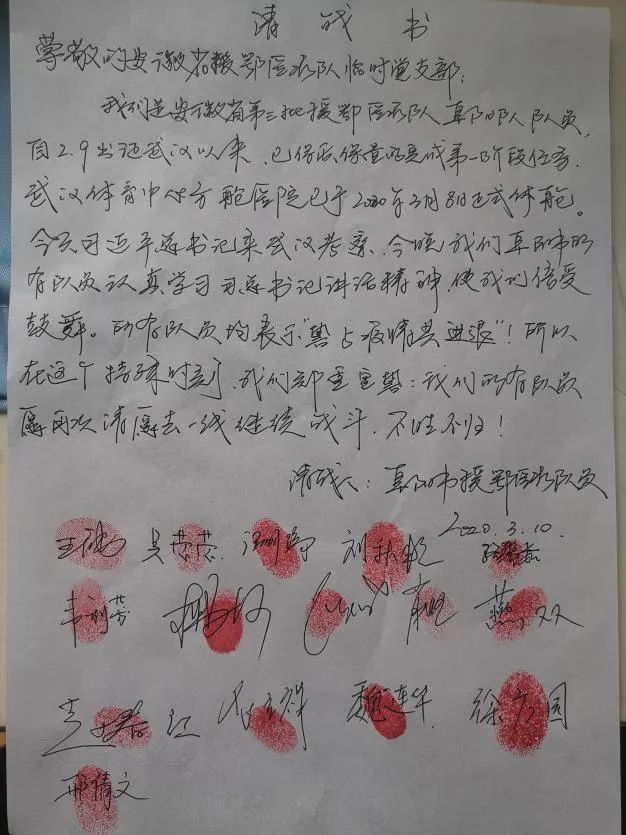 请战书
尊敬的安徽省援鄂医疗队临时党支部:
我们是安徽省第三批援鄂医疗队阜阳队队员,
自2.9出征武汉以来,已保质保量的完成第一阶段任务.
武汉体育中心方舱医院已于2020年3月8日正式休舱。
今天习近平总书记来武汉考察,今晚我们阜阳市的
所有队员认真学习习总书记讲话精神,使我们倍受
鼓舞。所有队员均表示"誓与病情共进退"!所以
在这个特殊时刻,我们郑重宣誓:我们所有队员
愿再次请愿去一线继续战斗,不胜不归!
请战人:阜阳市援鄂医疗队队员
2020.3.10.
刘秋艳
韦利芬
燕双
魏连华
徐方园
邢倩文